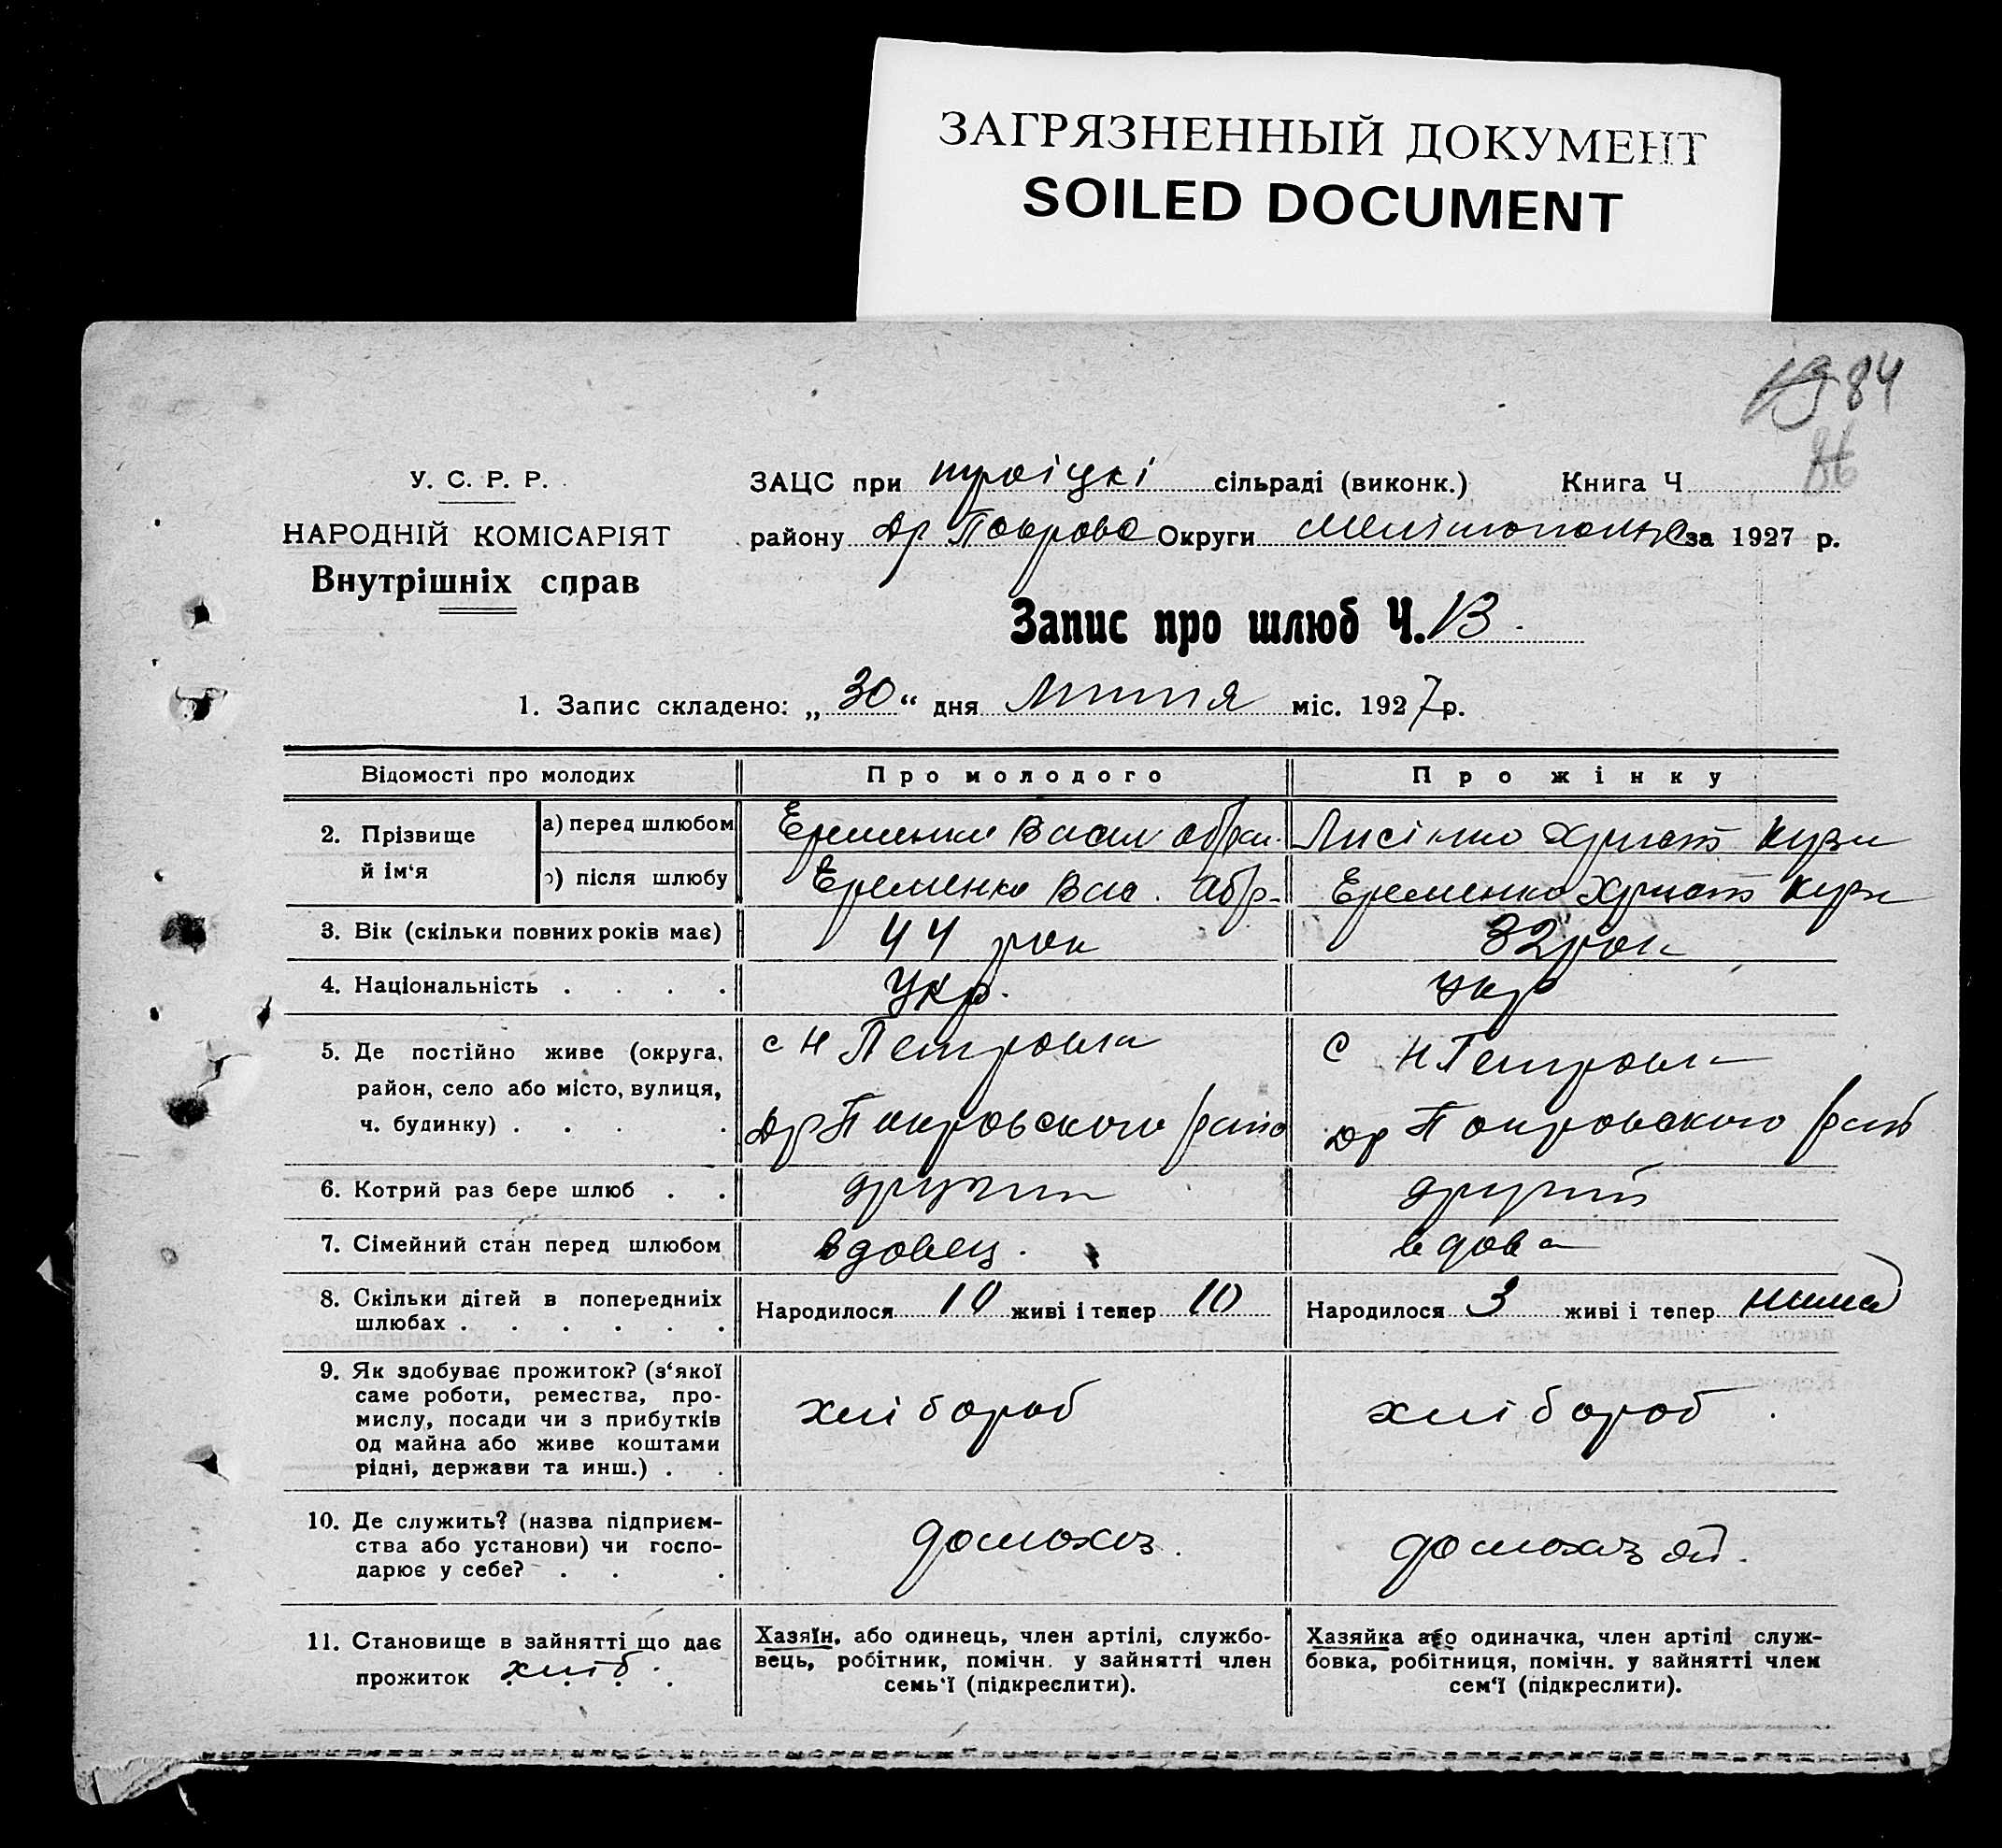 ЗАГРЯЗНЕННЫЙ ДОКУМЕНТ
SOILED DOCUMENT
84
86
У. С. Р. Р.
НАРОДНІЙ КОМІСАРІЯТ
Внутрішніх справ
ЗАЦС при троіцкі сільраді (виконк.) Книга Ч
району Др Покровс Округи Мелітопольс за 1927 р.
Запис про шлюб Ч. 13.
1. Запис складено: „30“ дня Липня міс. 1927 р.
Відомості про молодих Про молодого Про жінку
2. Прізвище й ім‘я
а) перед шлюбом Еременко Васил Абрам. Лисінко Христ Кузм
б) після шлюбу Еременко Вас. Абр. Еременко Христ Кузм
3. Вік (скільки повних років має) 44 рок 32 рок
4. Національність . . . . Укр. Укр
5. Де постійно живе (округа, район, село або місто, вулиця, ч. будинку) . . . .
с Н Петровка
Др Покровского раіо
с Н Петровка
Др Покровского раіо
6. Котрий раз бере шлюб . . другий другий
7. Сімейний стан перед шлюбом вдовец. вдова
8. Скільки дітей в попередниіх шлюбах . . . . . .
Народилося 10 живі і тепер 10
Народилося 3 живі і тепер нима
9. Як здобуває прожиток? (з‘якої
саме роботи, ремества, про-
мислу, посади чи з прибутків
од майна або живе коштами
рідні, держави та инш.) . .
хлібороб
хлібороб.
10. Де служить? (назва підприєм-
ства або установи) чи госпо-
дарює у себе? . . .
домохоз.
домохоз
11. Становище в зайнятті що дає
прожиток хліб.
Хазяїн, або одинець, член артілі, службо-
вець, робітник, помічн. у зайнятті член
семь‘ї (підкреслити).
Хазяйка або одиначка, член артілі служ-
бовка, робітниця, помічн. у зайнятті член
сем‘ї (підкреслити).